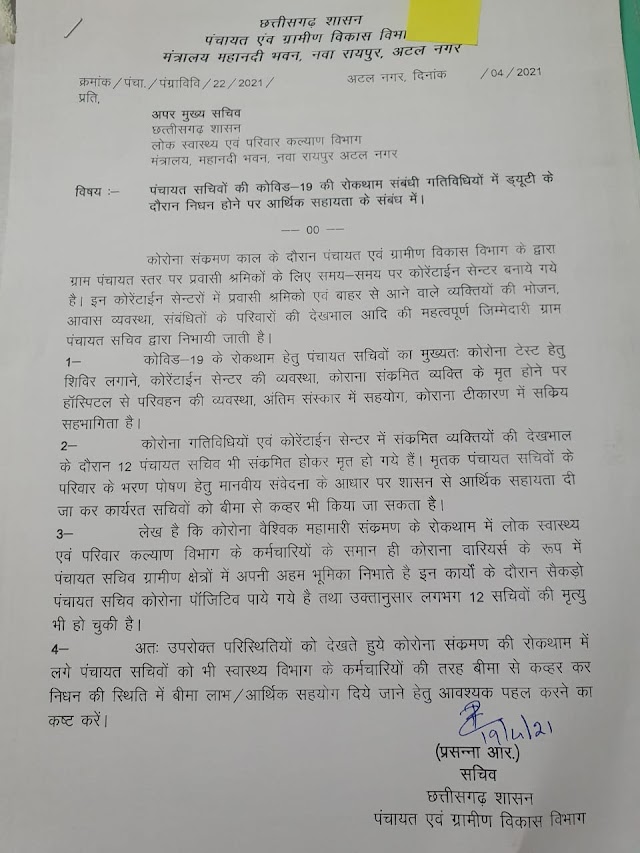 छत्तीसगढ़ शासन
पंचायत एंव ग्रामीण विकास
मंत्रालय महानदी भवन, नवा रायपुर, अटल नगर
क्रमांक/पंचा./पंग्राविवि/22/2021/ अटल नगर, दिनांक /04/2021
प्रति,
अपर मुख्य सचिव
छत्तीसगढ़ शासन
लोक स्वास्थ्य एवं परिवार कल्याण विभाग
मंत्रालय, महानदी भवन, नवा रायपुर अटल नगर
विषय :– पंचायत सचिवों की कोविड–19 की रोकथाम संबंधी गतिविधियों में ड्यूटी के
दौरान निधन होने पर आर्थिक सहायता के संबंध में।
–– 00 ––
कोरोना संक्रमण काल के दौरान पंचायत एवं ग्रामीण विकास विभाग के द्वारा
ग्राम पंचायत स्तर पर प्रवासी श्रमिकों के लिए समय–समय पर कोरेंटाईन सेन्टर बनाये गये
है। इन कोरेंटाईन सेन्टरों में प्रवासी श्रमिको एवं बाहर से आने वाले व्यक्तियों की भोजन,
आवास व्यवस्था, संबंधितों के परिवारों की देखभाल आदि की महत्वपूर्ण जिम्मेदारी ग्राम
पंचायत सचिव द्वारा निभायी जाती है।
1– कोविड–19 के रोकथाम हेतु पंचायत सचिवों का मुख्यतः कोरोना टेस्ट हेतु
शिविर लगाने, कोरेंटाईन सेन्टर की व्यवस्था, कोराना संक्रमित व्यक्ति के मृत होने पर
हॉस्पिटल से परिवहन की व्यवस्था, अंतिम संस्कार में सहयोग, कोराना टीकारण में सक्रिय
सहभागिता है।
2– कोरोना गतिविधियों एवं कोरेंटाईन सेन्टर में संक्रमित व्यक्तियों की देखभाल
के दौरान 12 पंचायत सचिव भी संक्रमित होकर मृत हो गये हैं। मृतक पंचायत सचिवों के
परिवार के भरण पोषण हेतु मानवीय संवेदना के आधार पर शासन से आर्थिक सहायता दी
जा कर कार्यरत सचिवों को बीमा से कव्हर भी किया जा सकता है।
3– लेख है कि कोरोना वैश्विक महामारी संक्रमण के रोकथाम में लोक स्वास्थ्य
एवं परिवार कल्याण विभाग के कर्मचारियों के समान ही कोराना वारियर्स के रूप में
पंचायत सचिव ग्रामीण क्षेत्रों में अपनी अहम भूमिका निभाते है इन कार्यो के दौरान सैकड़ो
पंचायत सचिव कोरोना पॉजिटिव पाये गये है तथा उक्तानुसार लगभग 12 सचिवों की मृत्यु
भी हो चुकी है।
4– अतः उपरोक्त परिस्थितियों को देखते हुये कोरोना संक्रमण की रोकथाम में
लगे पंचायत सचिवों को भी स्वास्थ्य विभाग के कर्मचारियों की तरह बीमा से कव्हर कर
निधन की स्थिति में बीमा लाभ/आर्थिक सहयोग दिये जाने हेतु आवश्यक पहल करने का
कष्ट करें।
19/4/21
(प्रसन्ना आर.)
सचिव
छत्तीसगढ़ शासन
पंचायत एवं ग्रामीण विकास विभाग